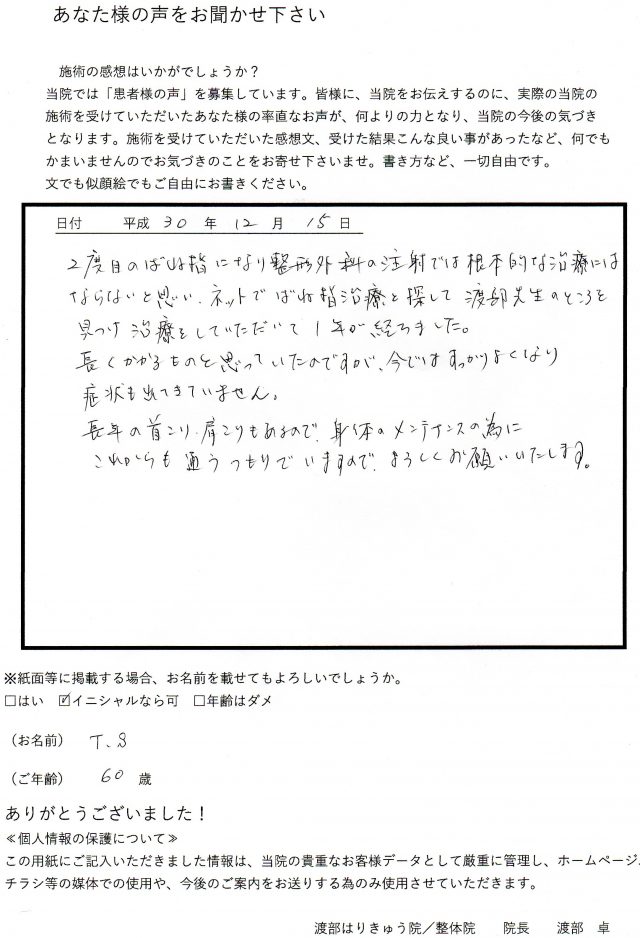 あなた様の声をお聞かせ下さい
施術の感想はいかがでしょうか?
当院では「患者様の声」を募集しています。皆様に、当院をお伝えするのに、実際の当院の
施術を受けていただいたあなた様の率直なお声が、何よりの力となり、当院の今後の気づき
となります。施術を受けていただいた感想文、受けた結果こんな良い事があったなど、何でも
かまいませんのでお気づきのことをお寄せ下さいませ。書き方など、一切自由です。
文でも似顔絵でもご自由にお書きください。
日付 平成 30 年 12 月 15 日
2度目のばね指になり整形外科の注射では根本的な治療には
ならないと思い、ネットでばね指治療を探して渡部先生のところを
見つけ治療をしていただいて1年が経ちました。
長くかかるものと思っていたのですが、今ではすっかりよくなり
症状も出てきていません。
長年の首こり、肩こりもあるので、身体のメンテナンスの為に
これからも通うつもりでいますので、よろしくお願いいたします。
※紙面等に掲載する場合、お名前を載せてもよろしいでしょうか。
□はい ☑イニシャルなら可 □年齢はダメ
(お名前) T.S
(ご年齢) 60 歳
ありがとうございました!
≪個人情報の保護について≫
この用紙にご記入いただきました情報は、当院の貴重なお客様データとして厳重に管理し、ホームページ、
チラシ等の媒体での使用や、今後のご案内をお送りする為のみ使用させていただきます。
渡部はりきゅう院/整体院 院長 渡部 卓